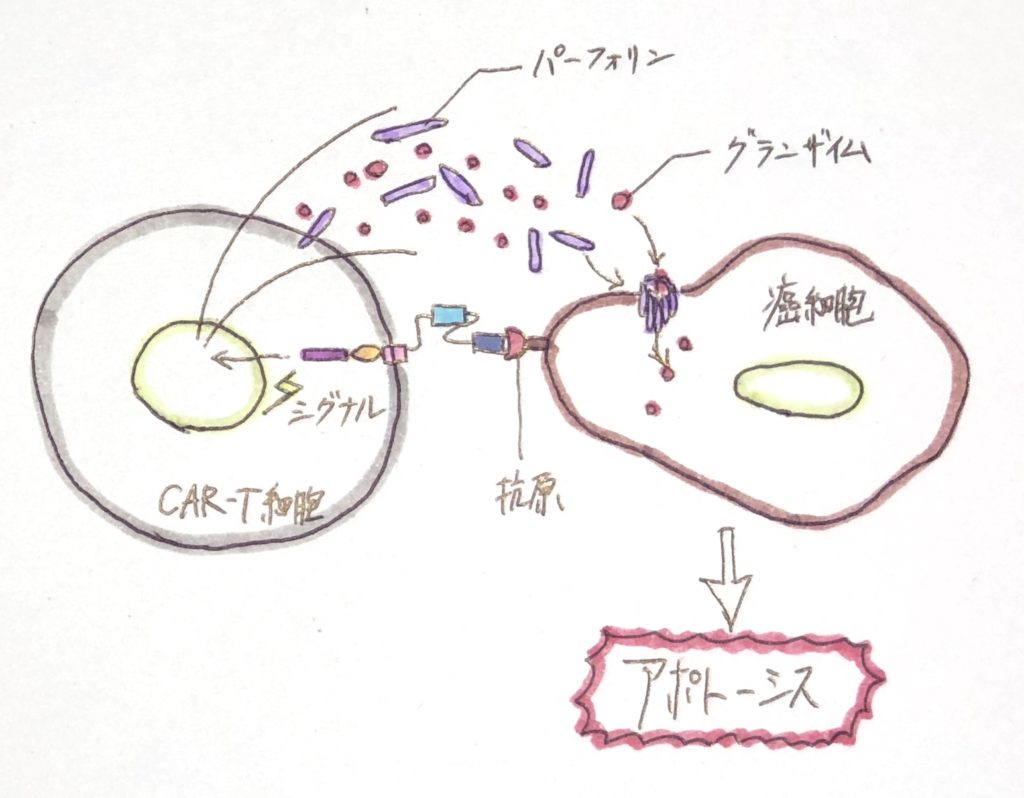 パーフォリン
グランザイム
癌細胞
シグナル
CAR-T細胞
抗原
アポトーシス